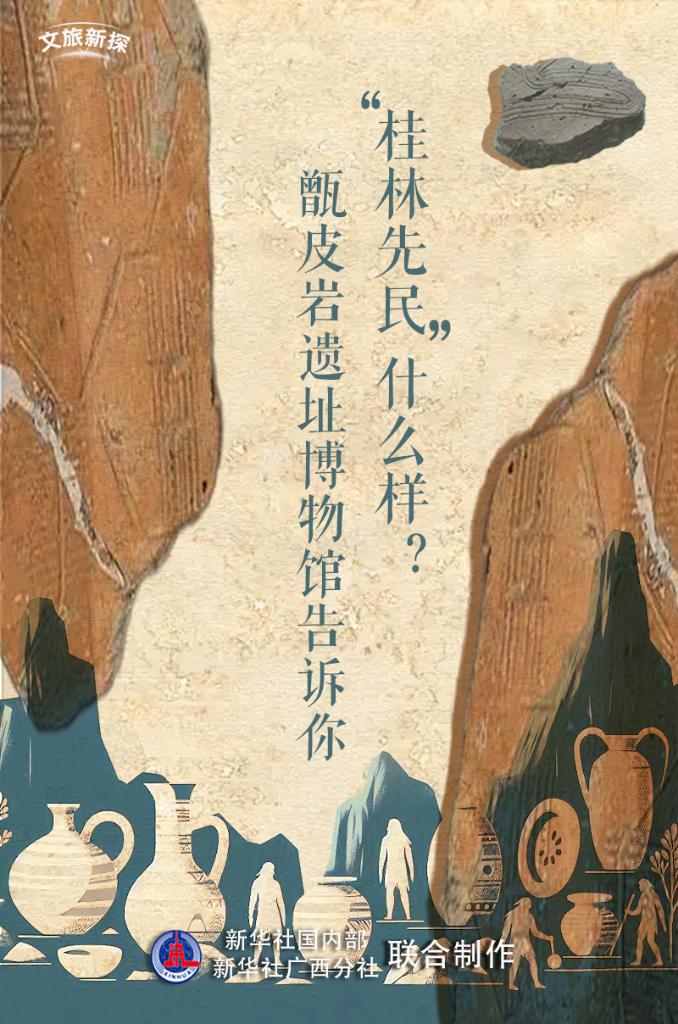 文旅新探
“桂林先民”什么样？
甑皮岩遗址博物馆告诉你
新华社国内部
新华社广西分社
联合制作
XINHUA